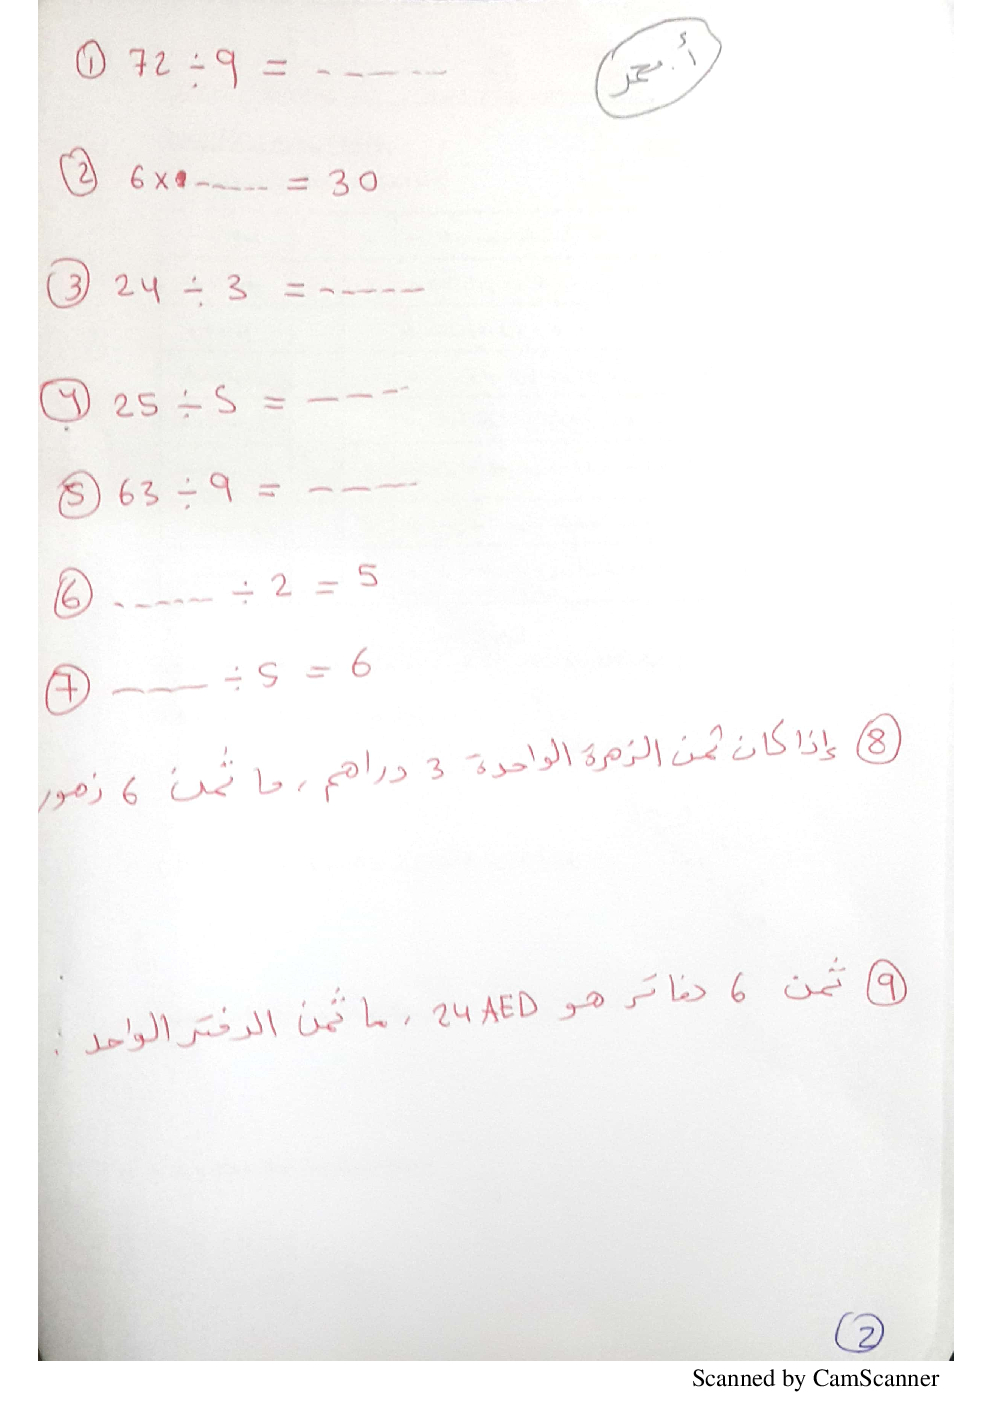 ① 72 ÷ 9 = -----
② 6 x ----- = 30
③ 24 ÷ 3 = -----
④ 25 ÷ 5 = ----
⑤ 63 ÷ 9 = ----
⑥ ------ ÷ 2 = 5
⑦ ---- ÷ 5 = 6
⑧ إذا كان ثمن الزهرة الواحدة 3 دراهم، ما ثمن 6 زهور
⑨ ثمن 6 دفاتر هو 24 AED، ما ثمن الدفتر الواحد :
②
Scanned by CamScanner